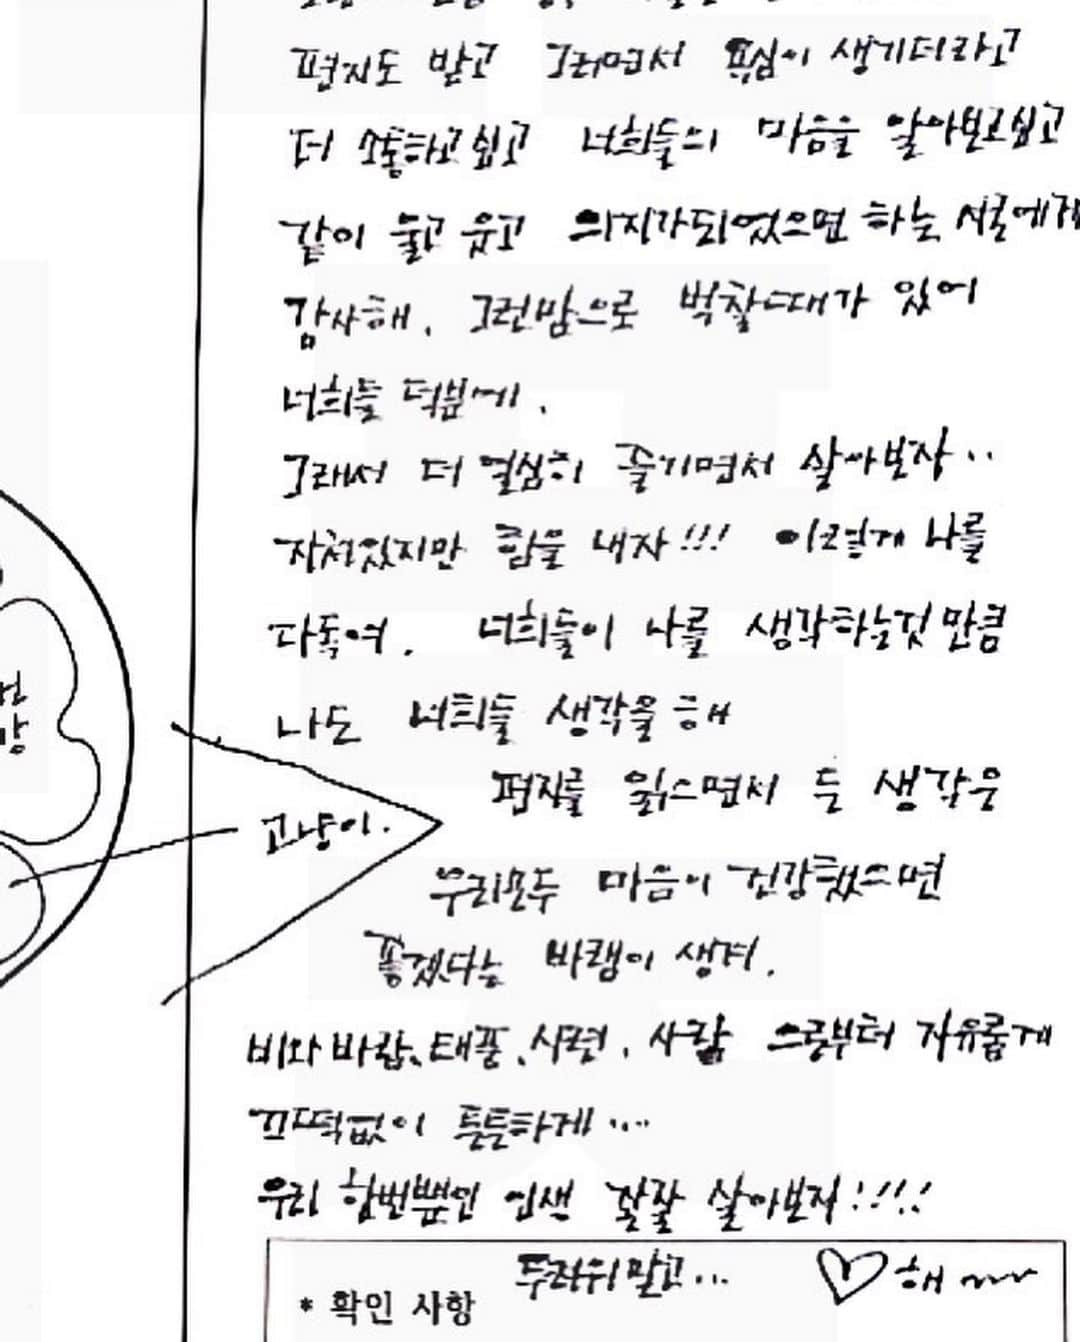 편지도 받고 그러면서 욕심이 생기더라고
더 소통하고싶고 너희들의 마음을 알아보고싶고
같이 울고 웃고 의지가되었으면 하는
감사해. 그런맘으로 벅찰때가 있어
너희들 덕분에.
그래서 더 열심히 즐기면서 살아보자..
지쳐있지만 힘을 내자!!! 이렇게 나를
다독여. 너희들이 나를 생각하는것 만큼
나도 너희들 생각을 해
편지를 읽으면서 든 생각은
고냥이.
우리모두 마음이 건강했으면
좋겠다는 바램이 생겨.
비와 바람, 태풍, 시련, 사람 으로부터 자유롭게
끄떡없이 튼튼하게...
우리 한번뿐인 인생 잘 살아보자!!!!
두려워말고... ♡해
* 확인 사항